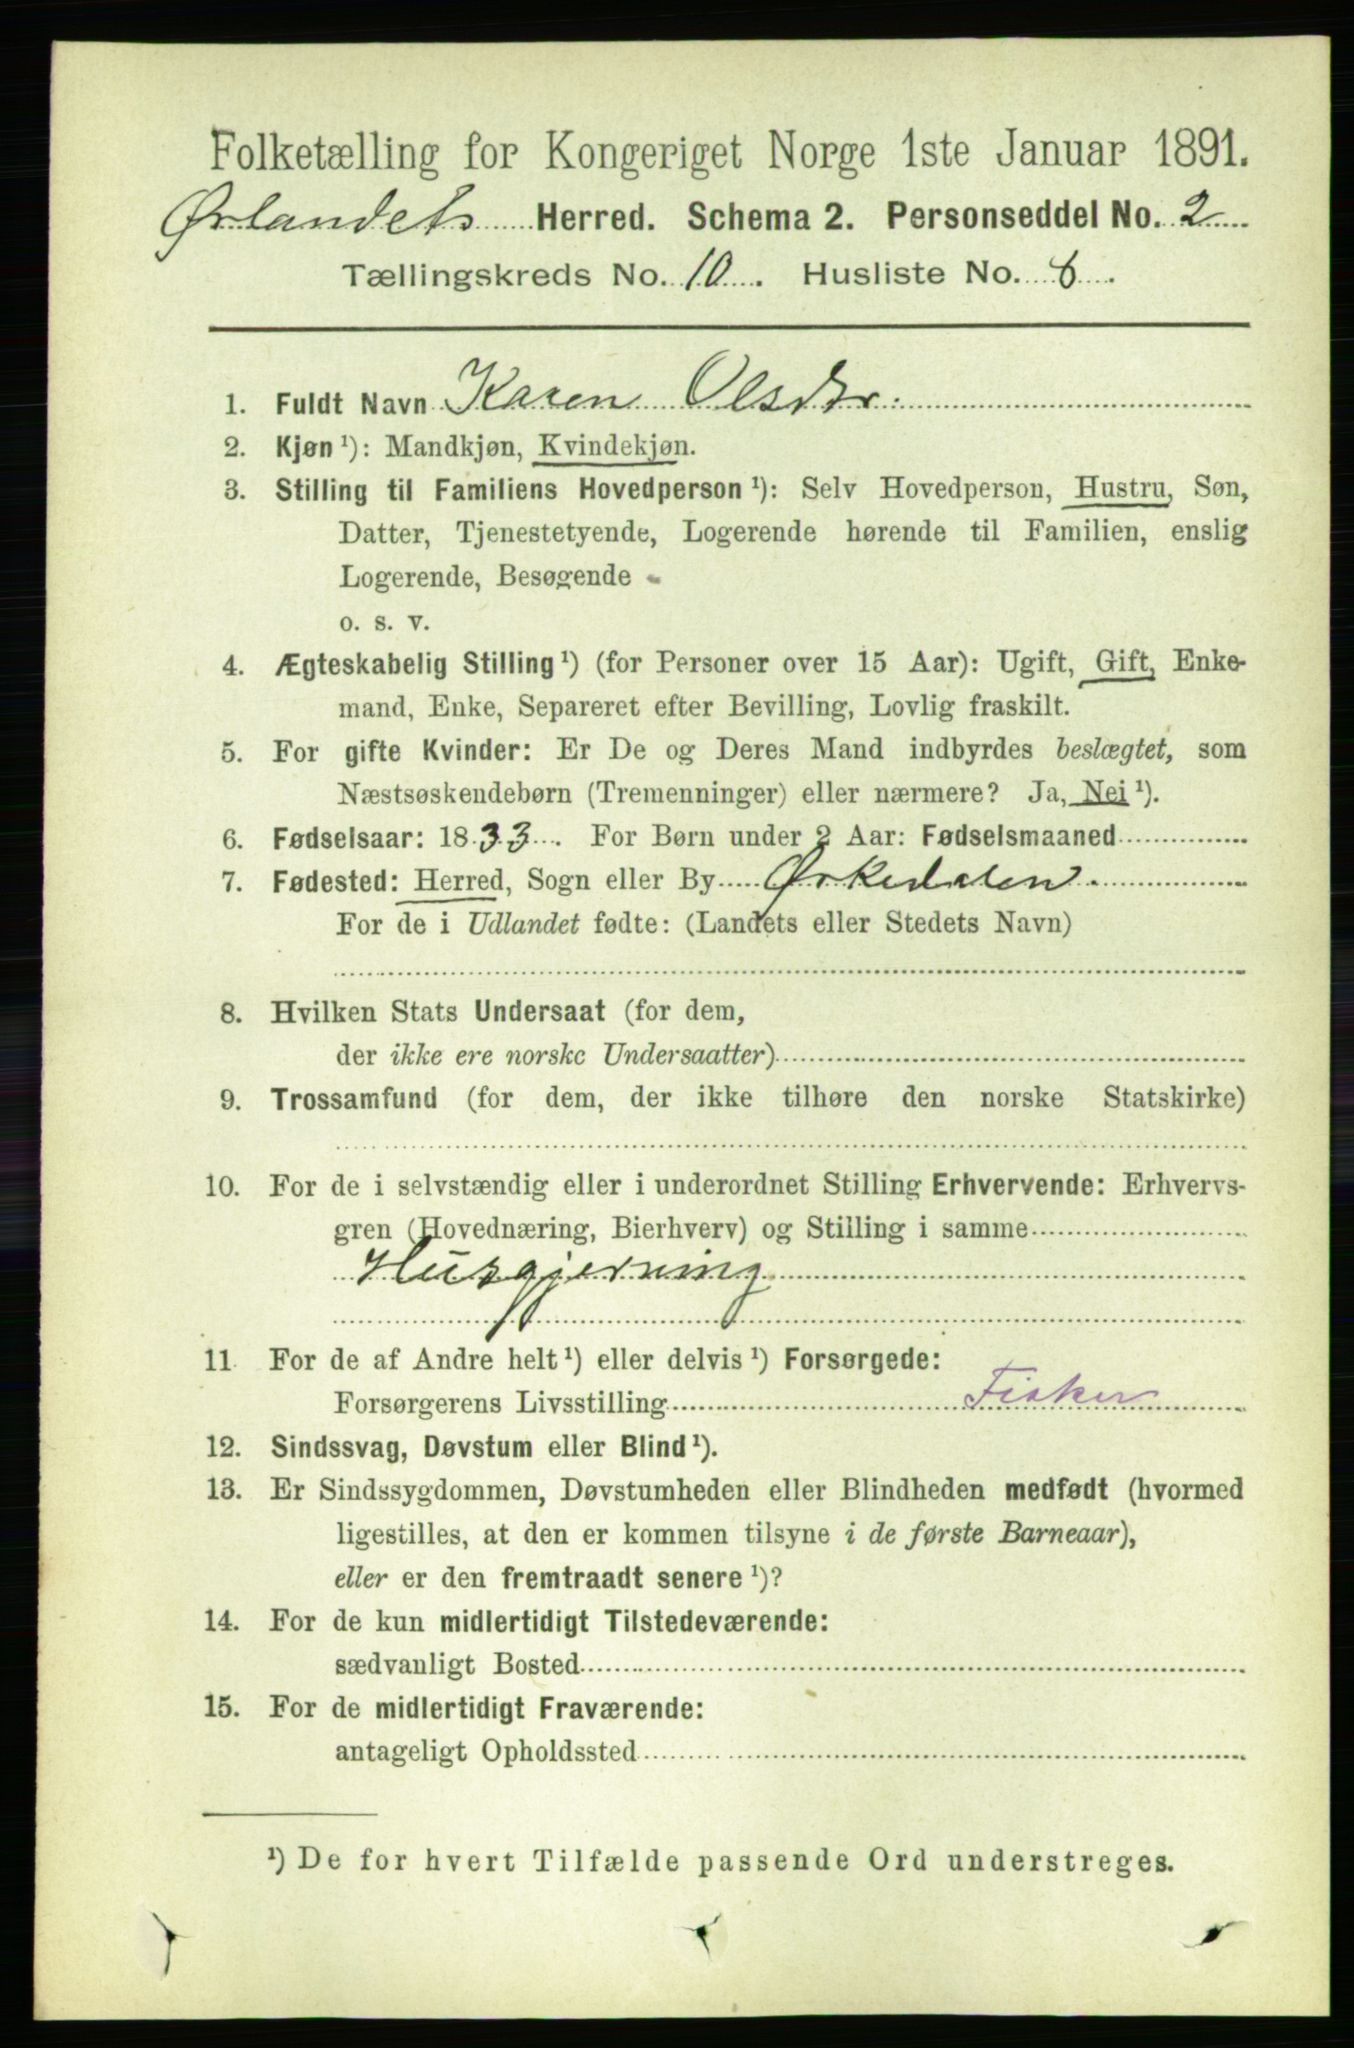 Folketælling for Kongeriget Norge 1ste Januar 1891.
Ørlandets Herred. Schema 2. Personseddel No. 2
Tællingskreds No. 10. Husliste No. 6.
1. Fuldt Navn Karen Olsdtr.
2. Kjøn ¹): Mandkjøn, Kvindekjøn.
3. Stilling til Familiens Hovedperson ¹): Selv Hovedperson, Hustru, Søn,
Datter, Tjenestetyende, Logerende hørende til Familien, enslig
Logerende, Besøgende
o. s. v.
4. Ægteskabelig Stilling ¹) (for Personer over 15 Aar): Ugift, Gift, Enke-
mand, Enke, Separeret efter Bevilling, Lovlig fraskilt.
5. For gifte Kvinder: Er De og Deres Mand indbyrdes beslægtet, som
Næstsøskendebørn (Tremenninger) eller nærmere? Ja, Nei ¹).
6. Fødselsaar: 1833. For Børn under 2 Aar: Fødselsmaaned
7. Fødested: Herred, Sogn eller By Ørkedalen.
For de i Udlandet fødte: (Landets eller Stedets Navn)
8. Hvilken Stats Undersaat (for dem,
der ikke ere norske Undersaatter)
9. Trossamfund (for dem, der ikke tilhøre den norske Statskirke)
10. For de i selvstændig eller i underordnet Stilling Erhvervende: Erhvervs-
gren (Hovednæring, Bierhverv) og Stilling i samme
Husgjerning
11 For de af Andre helt ¹) eller delvis ¹) Forsørgede:
Forsørgerens Livsstilling Fisker
12. Sindssvag, Døvstum eller Blind ¹).
13. Er Sindssygdommen, Døvstumheden eller Blindheden medfødt (hvormed
ligestilles, at den er kommen tilsyne i de første Barneaar),
eller er den fremtraadt senere ¹)?
14. For de kun midlertidigt Tilstedeværende:
sædvanligt Bosted
15. For de midlertidigt Fraværende:
antageligt Opholdssted
¹) De for hvert Tilfælde passende Ord understreges.